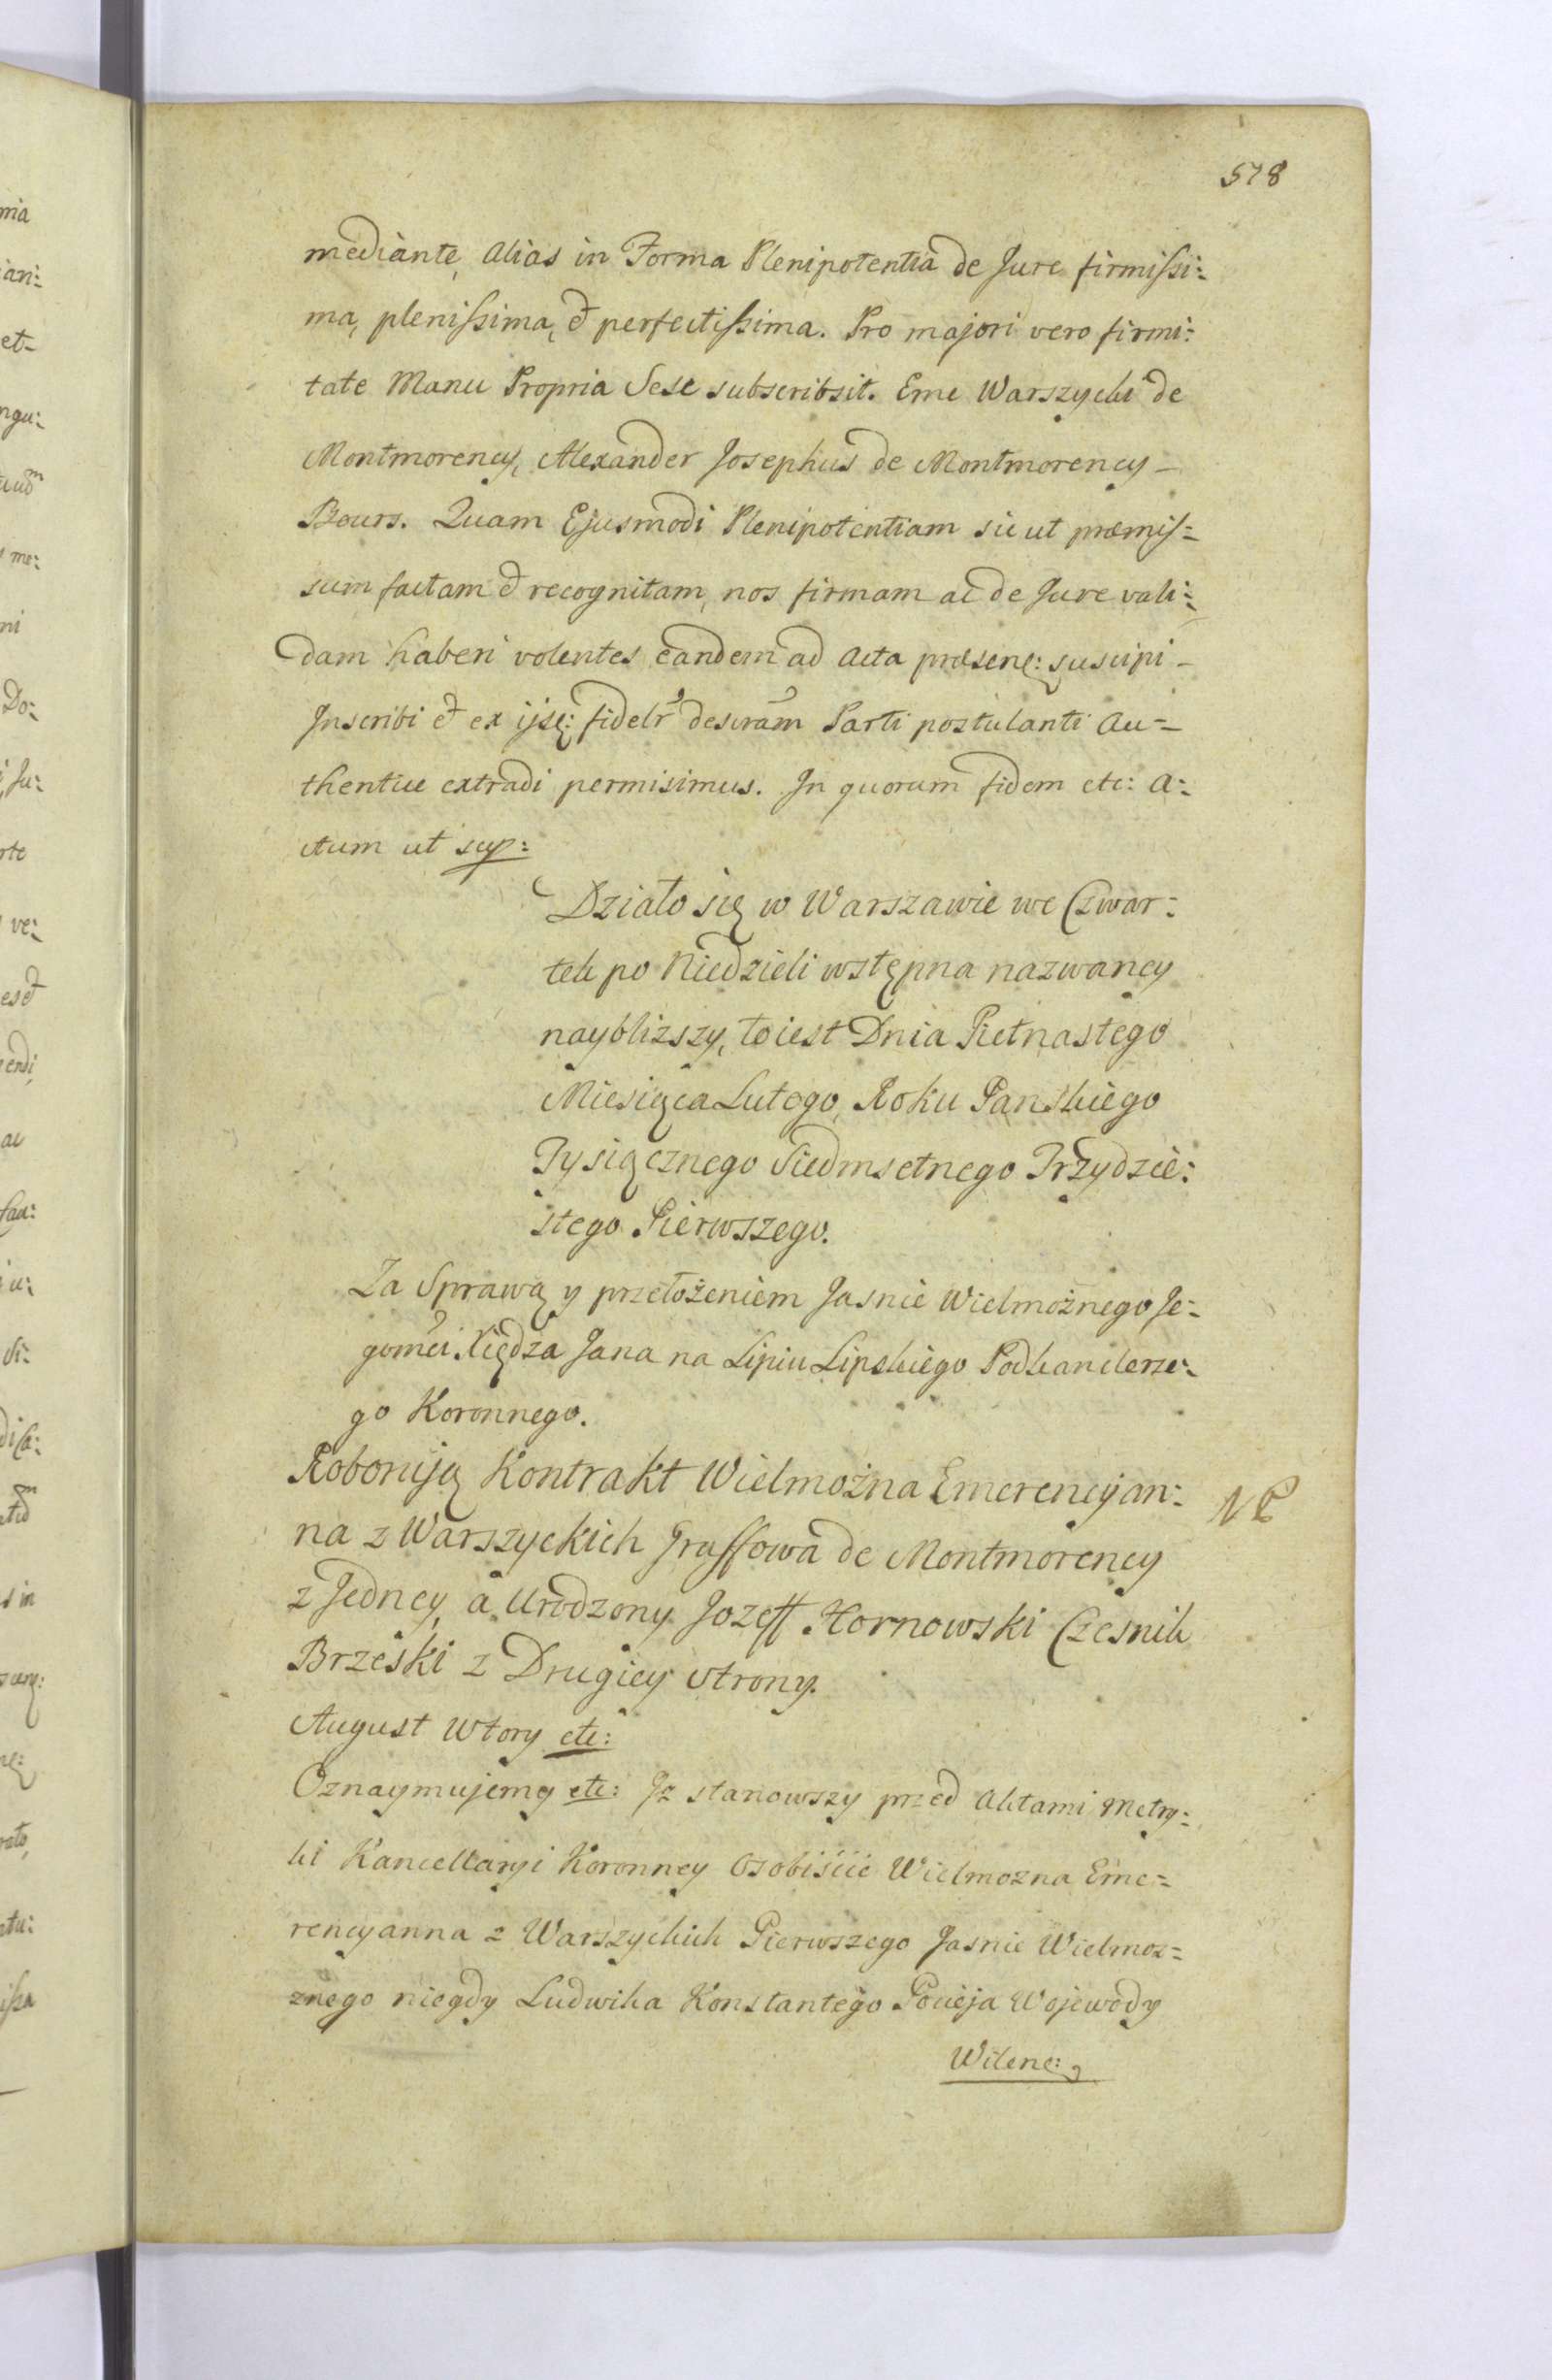 578
mediante, alias in Forma Plenipotentia de Jure firmissi:
ma, plenissima, et perfectissima. Pro majori vero firmi:
tate Manu Propria Sese subscribsit. Eme Warszycki de
Montmorency, Alexander Josephus de Montmorency –
Bours. Quam Ejusmodi Plenipotentiam sic ut præmis=
sum factam et recognitam, nos firmam ac de Jure vali:
dam haberi volentes eandem ad Acta præsene: suscipi –
Inscribi et ex ijsq: fidelr descram Parti postulanti Au=
thentice extradi permisimus. In quorum fidem etc: A:
ctum ut sup:
Działo się w Warszawie we Czwar:
tek po Niedzieli wstępna nazwaney
naybliższy, to iest Dnia Pietnastego
Miesiąca Lutego, Roku Panskiego
Tysiącznego Siedmsetnego Trzydzie:
stego Pierwszego.
Za Sprawą y przełożeniem Jasnie Wielmożnego Je=
gomci Xiędza Jana na Lipiu Lipskiego Podkanclerze:
go Koronnego.
Roborują Kontrakt Wielmożna Emerencyan:
na z Warszyckich Graffowa de Montmorency
z Jedney, a Urodzony Jozeff Hornowski Czesnik
Brzeski z Drugiey strony.
August Wtory etc:
Oznaymujemy etc: Jz stanowszy przed Aktami Metry:
ki Kancellaryi Koronney Osobiście Wielmozna Eme=
rencyanna z Warszyckich Pierwszego Jasnie Wielmoz=
znego niegdy Ludwika Konstantego Pocieja Wojewody
Wilene: